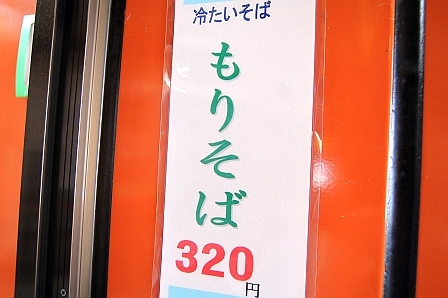 冷たいそば
もりそば
320円